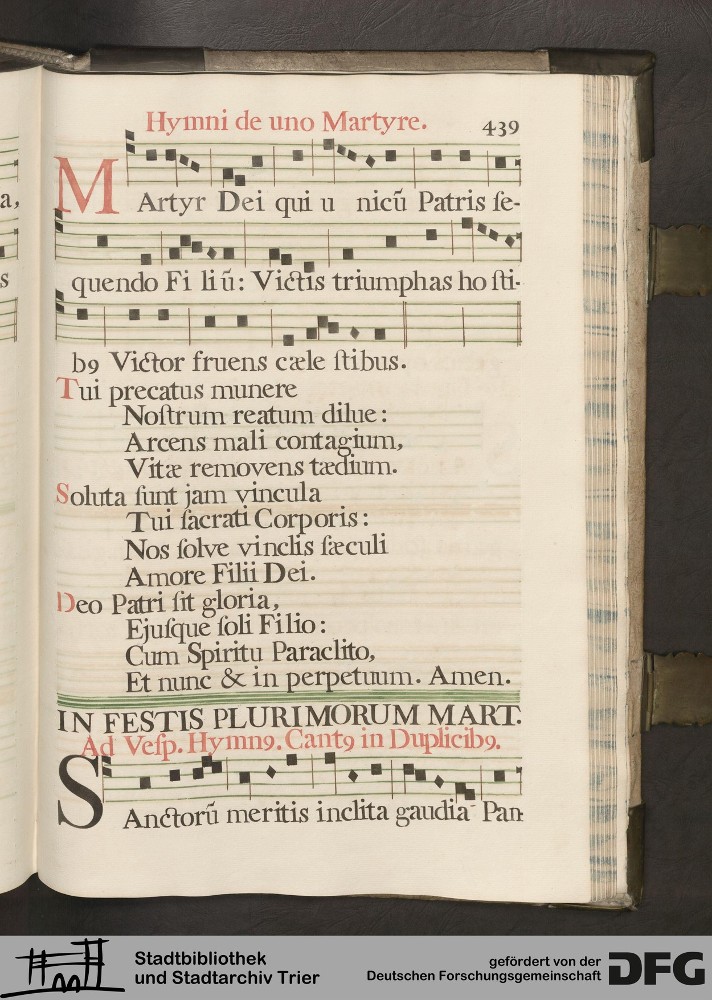 Hymni de uno Martyre. 439
MArtyr Dei qui u nicũ Patris ſe-
quendo Fi liũ: Victis triumphas ho ſti-
b9 Victor fruens cæle ſtibus.
Tui precatus munere
Noſtrum reatum dilue:
Arcens mali contagium,
Vitæ removens tædium.
Soluta ſunt jam vincula
Tui ſacrati Corporis:
Nos ſolve vinclis ſæculi
Amore Filii Dei.
Deo Patri ſit gloria,
Ejuſque ſoli Filio:
Cum Spiritu Paraclito,
Et nunc & in perpetuum. Amen.
IN FESTIS PLURIMORUM MART.
Ad Veſp. Hymn9. Cant9 in Duplicib9.
SAnctorũ meritis inclita gaudia Pan-
a,
s
Stadtbibliothek
und Stadtarchiv Trier
gefördert von der
Deutschen Forschungsgemeinschaft
DFG